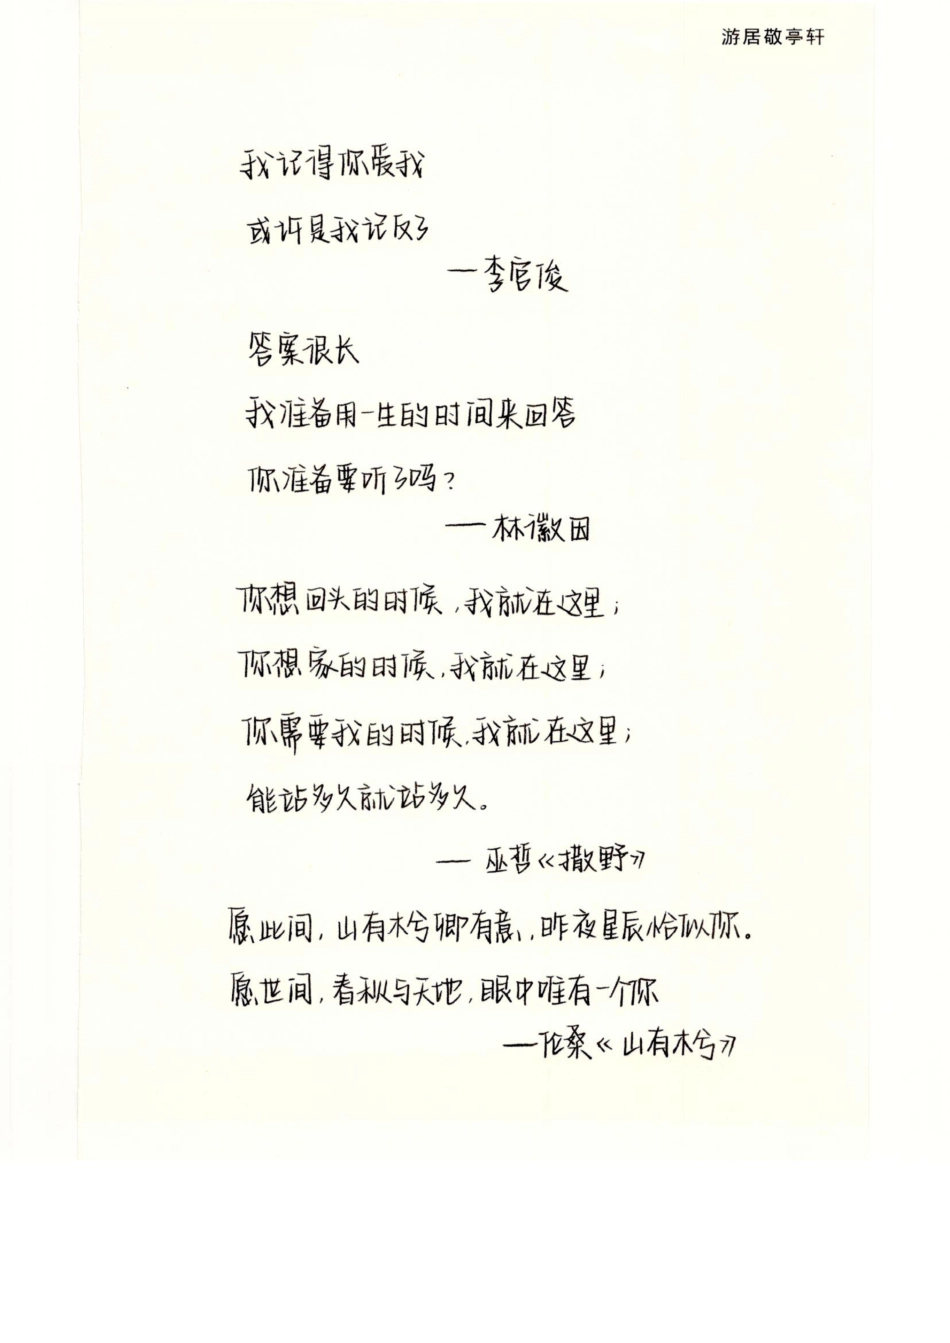 游居敬亭轩
我记得你爱我
或许是我记反了
—李官俊
答案很长
我准备用一生的时间来回答
你准备要听了吗？
—林徽因
你想回头的时候，我就在这里；
你想家的时候，我就在这里；
你需要我的时候，我就在这里；
能站多久就站多久。
—巫哲《撒野》
愿此间，山有木兮卿有意，昨夜星辰恰似你。
愿世间，春秋与天地，眼中唯有一个你
—伦桑《山有木兮》